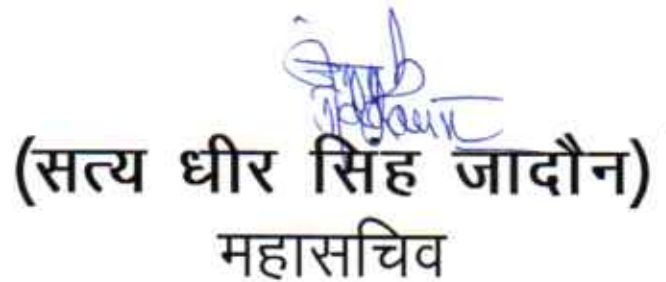 (सत्य धीर सिंह जादौन)
महासचिव